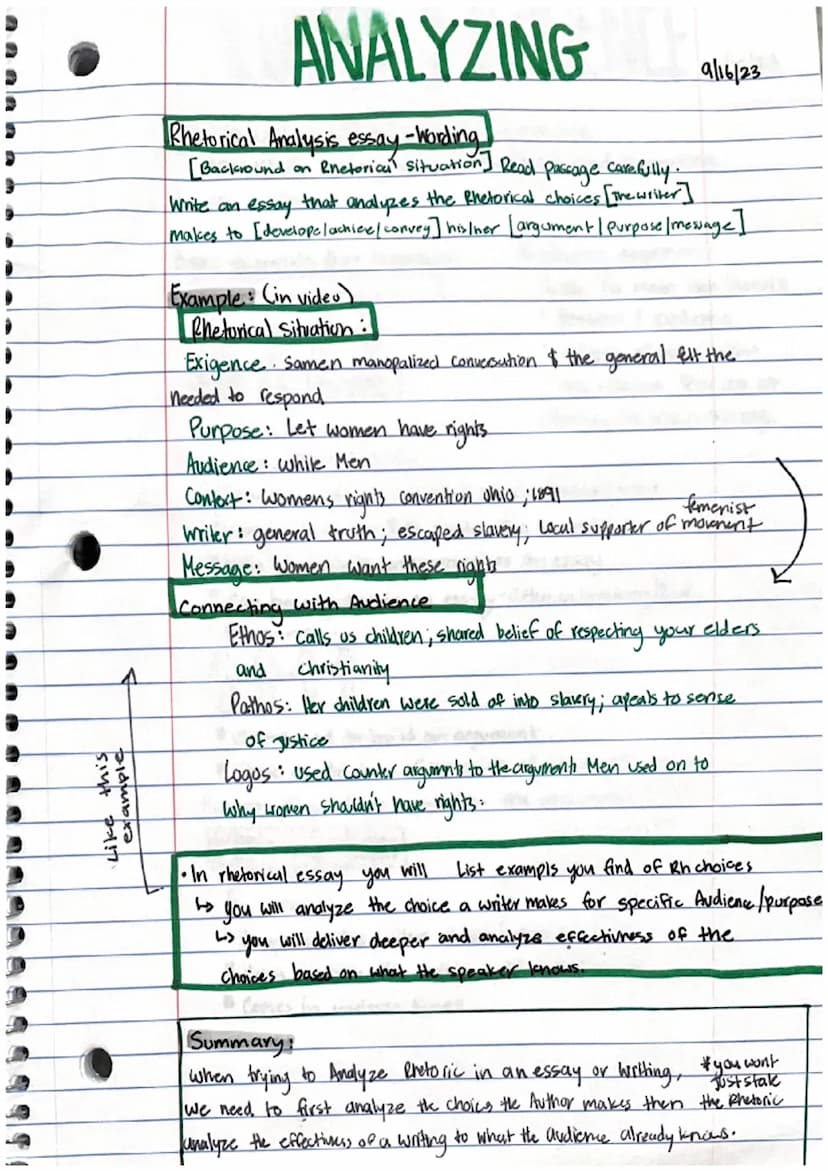 ANALYZING
9/16/23
Rhetorical Analysis essay - Wording
[Background on Rhetorical situation] Read passage carefully.
Write an essay that analyzes the Rhetorical choices [The writer]
makes to [develope/achieve/convey] his/her [argument/purpose/message]
Example: (in video)
Rhetorical Situation:
Exigence. manopalized conversation & the general felt the
needed to respond
Purpose: Let women have rights
Audience: while Men
Context: womens rights convention ohio ; 1891
femenist
Writer: general truth; escaped slavery; Local supporter of movement
Message: Women want these rights
Connecting with Audience
Ethos: calls us children; shared belief of respecting your elders
and christianity
Pathos: Her children were sold of into slavery; apeals to sense
of justice
Logos: used counter argumnts to the arguments Men used on to
why women shouldn't have rights.
Like this
example
• In rhetorical essay you will List exampls you find of Rh choices
↳ you will analyze the choice a writer makes for specific Audience/purpose
↳ you will deliver deeper and analyze effectivness of the
choices based on what the speaker knows.
Summary:
When trying to Analyze Rhetoric in an essay or writing,
we need to first analyze the choices the Author makes then
analyze the effectivness of a writing to what the audience already knows.
*you wont
just state
the Rhetoric